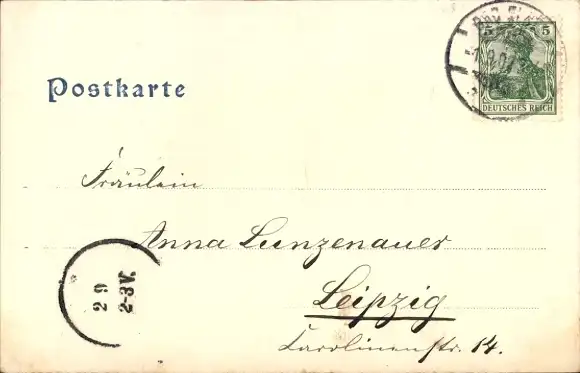 Postkarte
5 5
DEUTSCHES REICH
Fräulein
Anna Lunzenauer
Leipzig
Carolinenstr. 14.
2 9
2-3V.